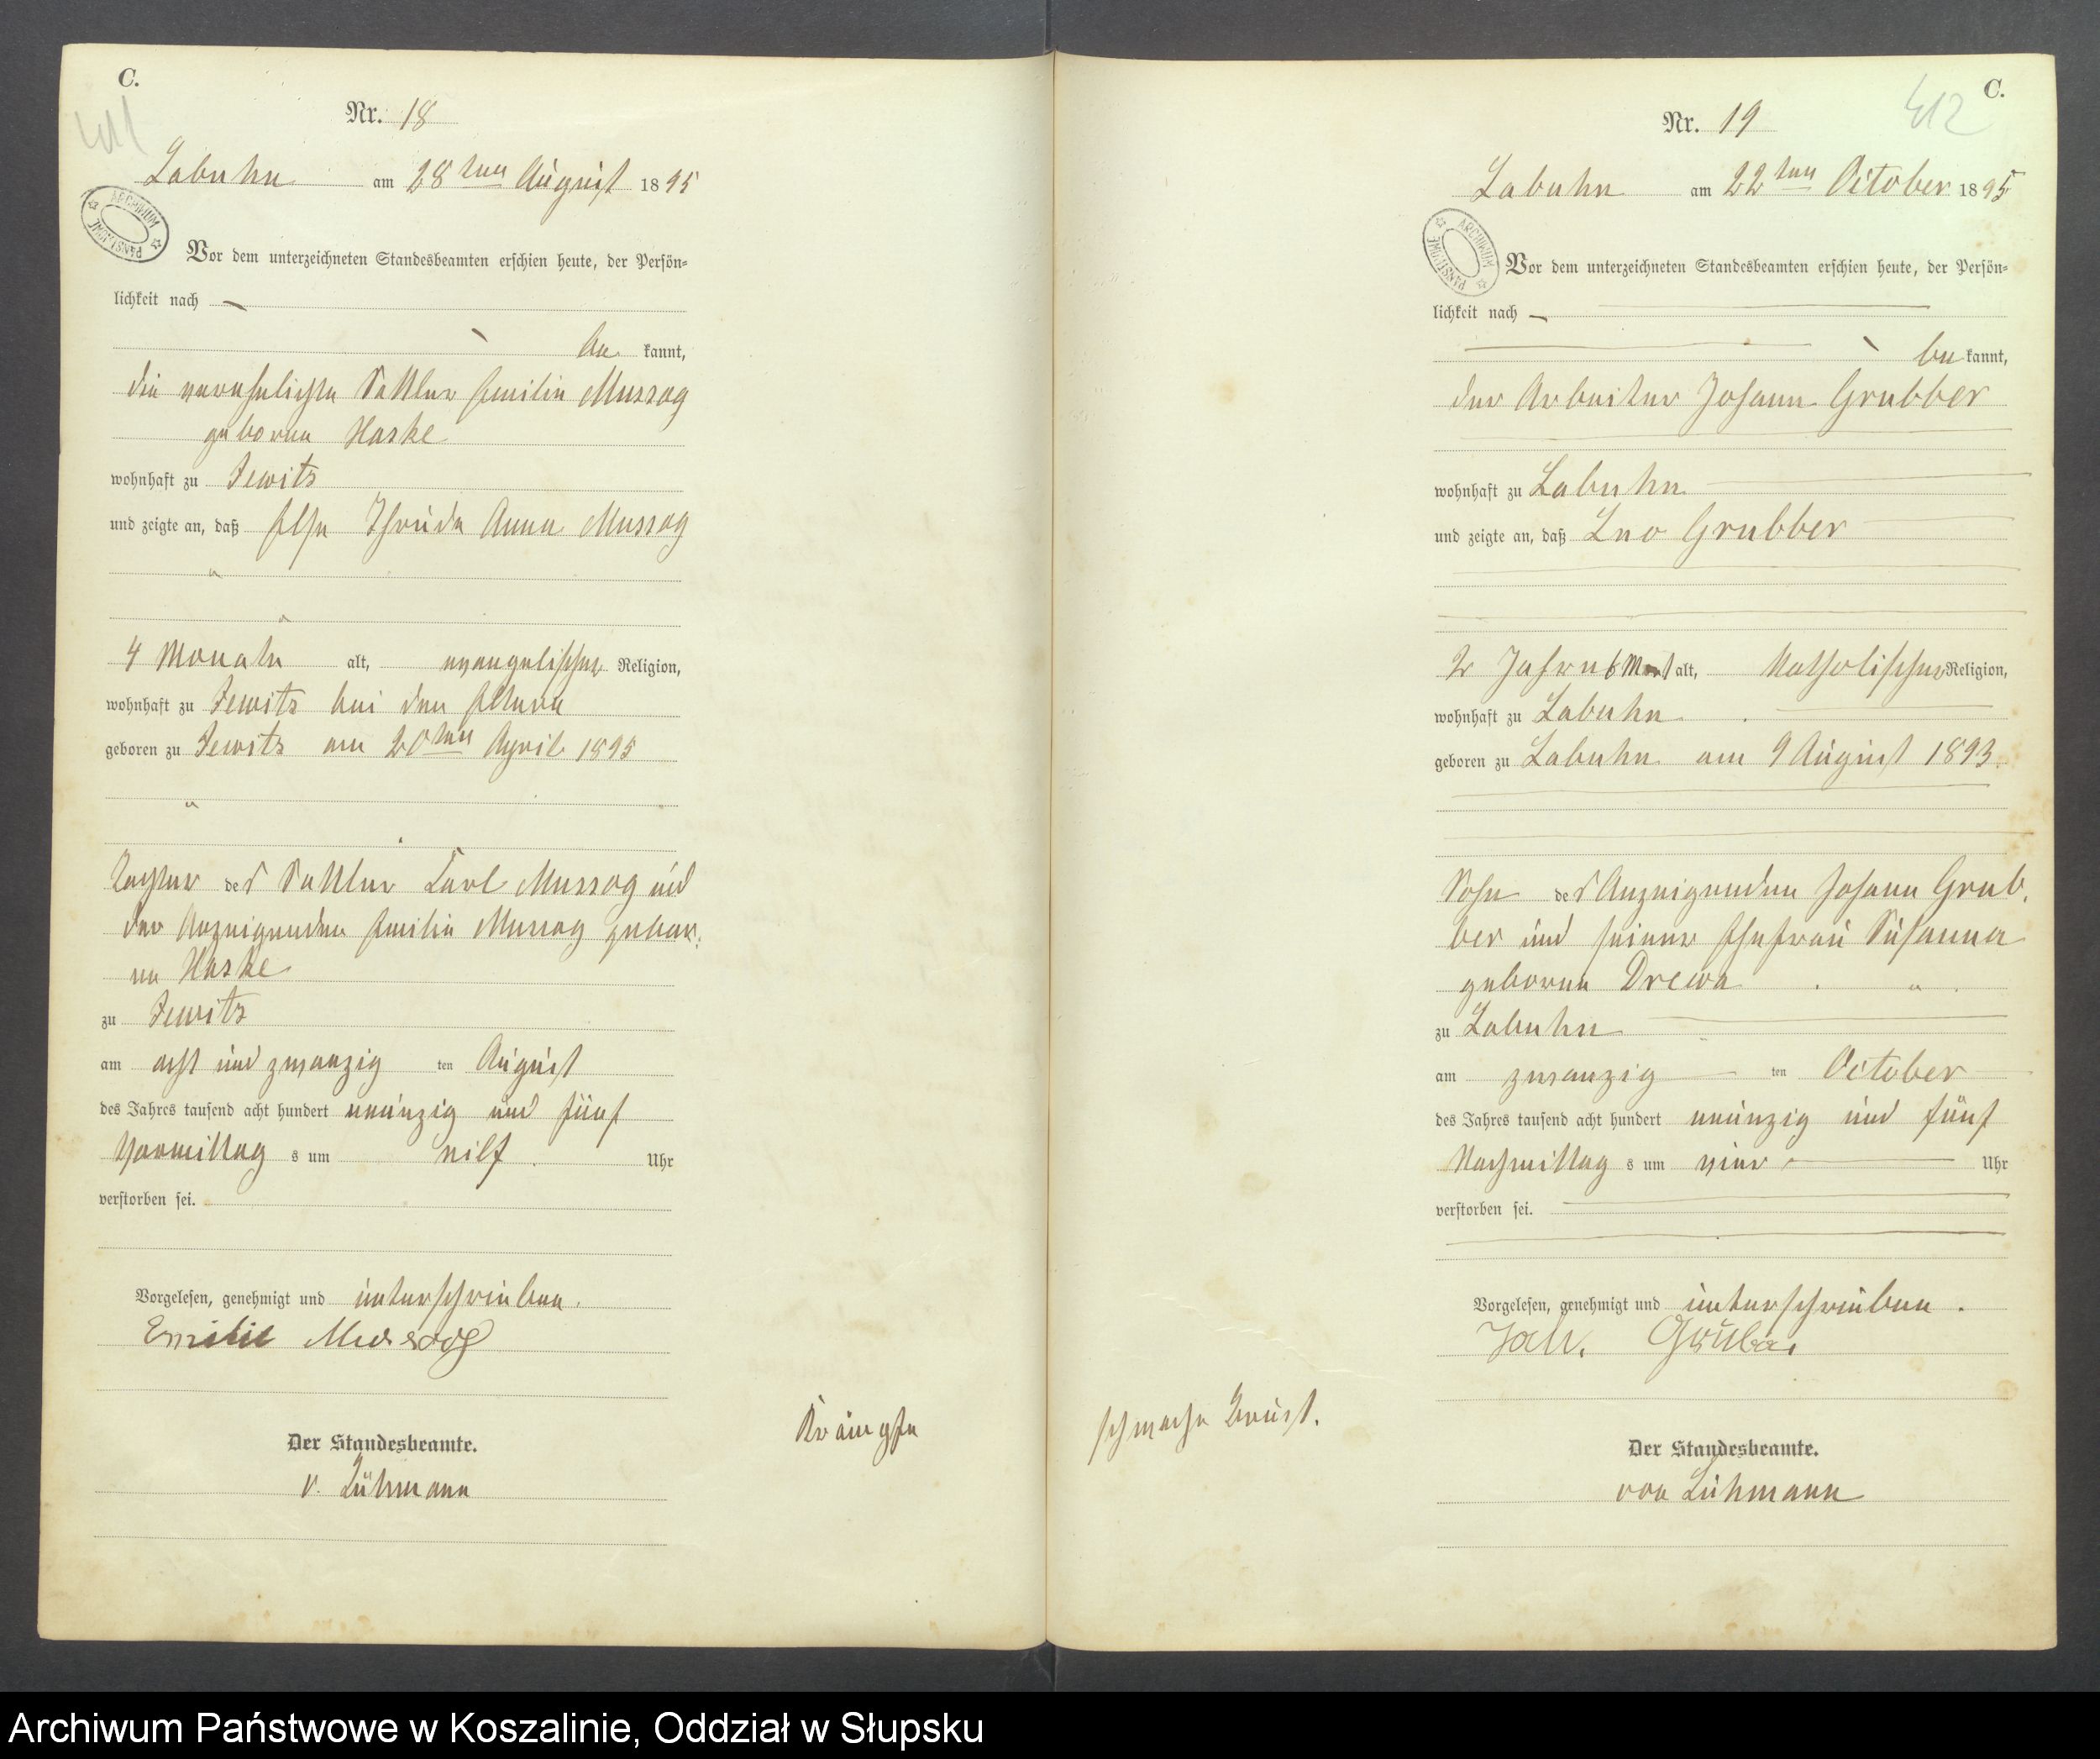 C.
411
Nr. 18
Labuhn am 28ten August 1895
ARCHIWUM PAŃSTWOWE
Vor dem unterzeichneten Standesbeamten erschien heute, der Persön-
lichkeit nach —
be kannt,
die verehelichte Sattler Emilie Mussog
geborene Haske
wohnhaft zu Jewitz
und zeigte an, daß Else Thrude Anna Mussog
4 Monate alt, evangelischer Religion,
wohnhaft zu Jewitz bei den Eltern
geboren zu Jewitz am 20ten April 1895
Tochter des Sattler Carl Mussog und
der Anzeigenden Emilie Mussog gebor.
ne Haske
zu Jewitz
am acht und zwanzig ten August
des Jahres tausend acht hundert neunzig und fünf
Vormittag s um eilf Uhr
verstorben sei.
Vorgelesen, genehmigt und unterschrieben.
Emilie Mussog
Der Standesbeamte.
v. Lühmann
Krämpfe
C.
412
Nr. 19
Labuhn am 22ten October 1895
ARCHIWUM PAŃSTWOWE
Vor dem unterzeichneten Standesbeamten erschien heute, der Persön-
lichkeit nach —
be kannt,
der Arbeiter Johann Grubber
wohnhaft zu Labuhn
und zeigte an, daß Leo Grubber
2 Jahre 6 Mont alt, Katholischer Religion,
wohnhaft zu Labuhn
geboren zu Labuhn am 9 August 1893.
Sohn des Anzeigenden Johann Grub.
ber und seiner Ehefrau Susanna
geborene Drewa
zu Labuhn
am zwanzig ten October
des Jahres tausend acht hundert neunzig und fünf
Nachmittag s um vier Uhr
verstorben sei.
Vorgelesen, genehmigt und unterschrieben.
Joh. Gruba.
schwache Brust.
Der Standesbeamte.
von Lühmann
Archiwum Państwowe w Koszalinie, Oddział w Słupsku